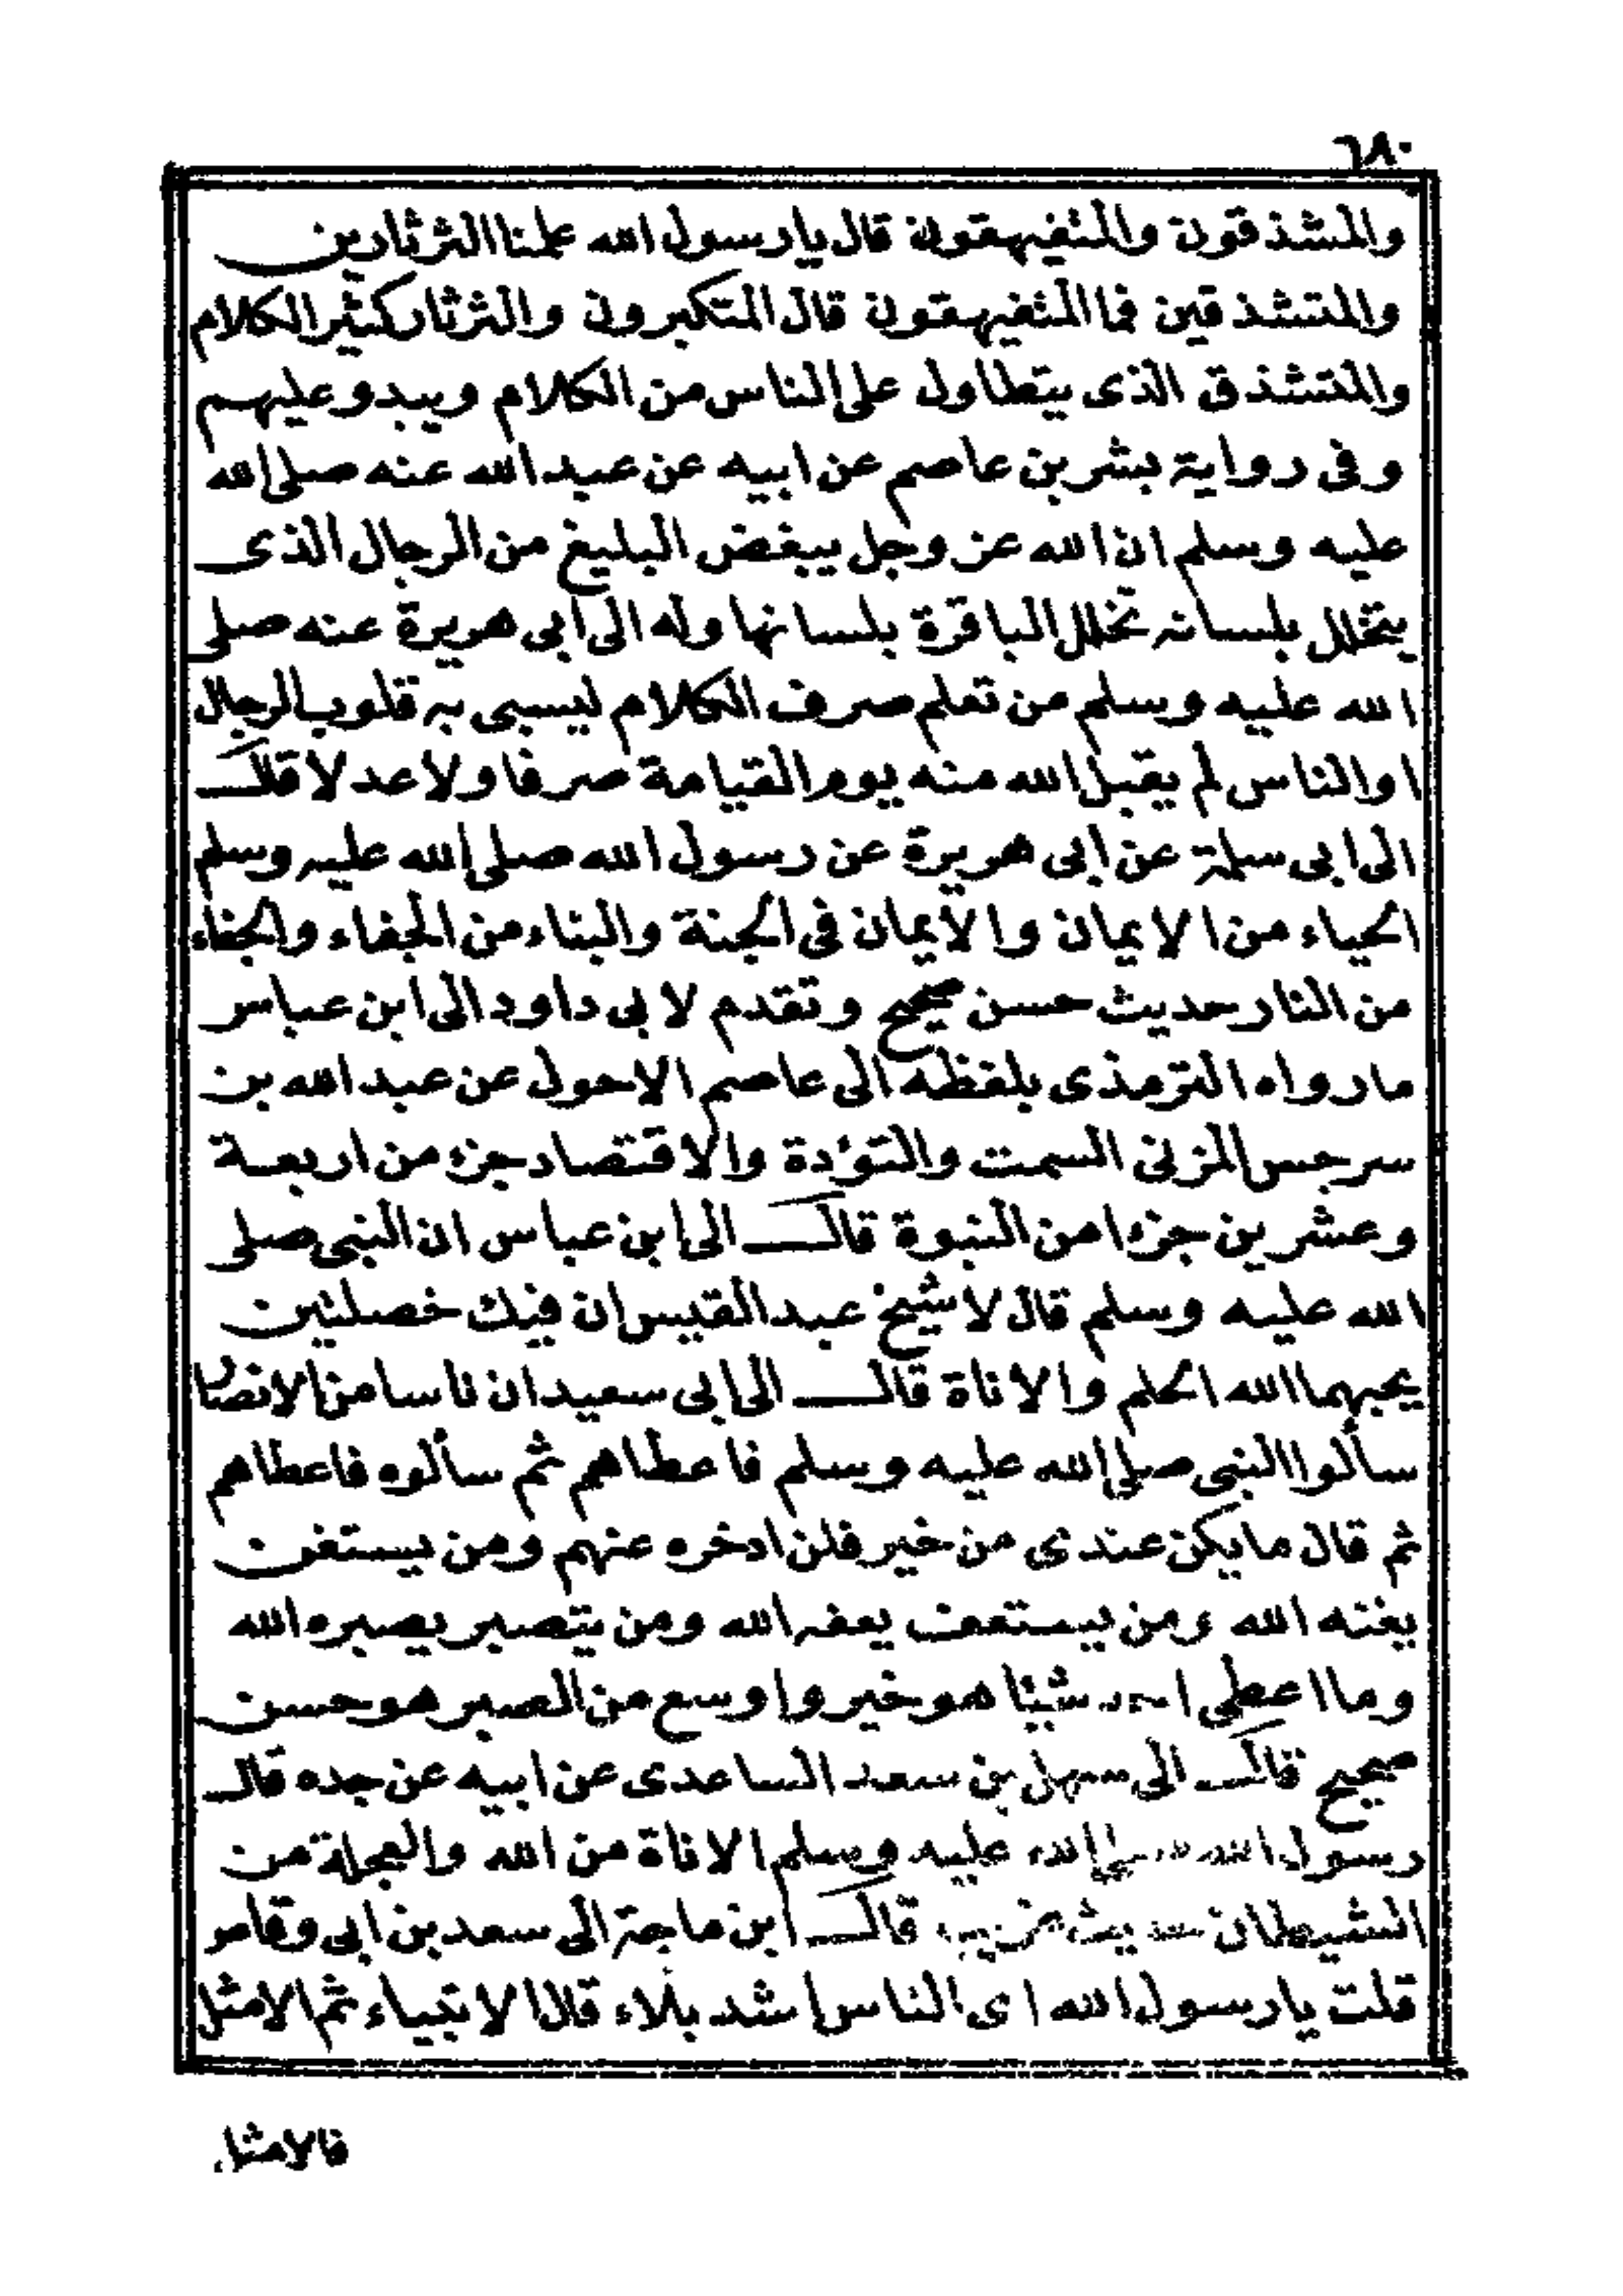 ٦٨٠
والمشذقون والمثفيهقون قال يا رسول الله علمنا الثرثارين
والمتشذقين فما المثفيهقون قال المتكبرون والثرثار كثير الكلام
والمتشذق الذى يتطاول على الناس من الكلام ويبدو عليهم
وفى رواية بشر بن عاصم عن ابيه عن عبد الله عنه صلى الله
عليه وسلم ان الله عز وجل يبغض البليغ من الرجال الذى
يتخلل بلسانه تخلل الباقرة بلسانها وله الى ابى هريرة عنه صلى
الله عليه وسلم من تعلم صرف الكلام ليسبى به قلوب الرجال
او الناس لم يقبل الله منه يوم القيامة صرفا ولا عدلا قال
الى ابى سلمة عن ابى هريرة عن رسول الله صلى الله عليه وسلم
الحياء من الايمان والايمان فى الجنة والبناء من الجفاء والجفاء
من النار حديث حسن صحيح وتقدم لابى داود الى ابن عباس
ما رواه الترمذى بلفظه الى عاصم الاحول عن عبد الله بن
سرجس المزنى السمت والتؤدة والاقتصاد جزء من اربعة
وعشرين جزءا من النبوة قال الى ابن عباس ان النبى صلى
الله عليه وسلم قال لاشيخ عبد القيس ان فيك خصلتين
يحبهما الله الحلم والاناة قال الى ابى سعيد ان ناسا من الانصار
سألوا النبى صلى الله عليه وسلم فاعطاهم ثم سألوه فاعطاهم
ثم قال ما يكن عندى من خير فلن ادخره عنهم ومن يستغن
يغنه الله ومن يستعفف يعفه الله ومن يتصبر يصبره الله
وما اعطى احد شيئا هو خير واوسع من الصبر هو حسن
صحيح قال الى سهل بن سعد الساعدى عن ابيه عن جده قال
رسول الله صلى الله عليه وسلم الاناة من الله والعجلة من
الشيطان حديث غريب قال ابن ماجة الى سعد بن ابى وقاص
قلت يا رسول الله اى الناس اشد بلاء قال الانبياء ثم الامثل
فالامثل